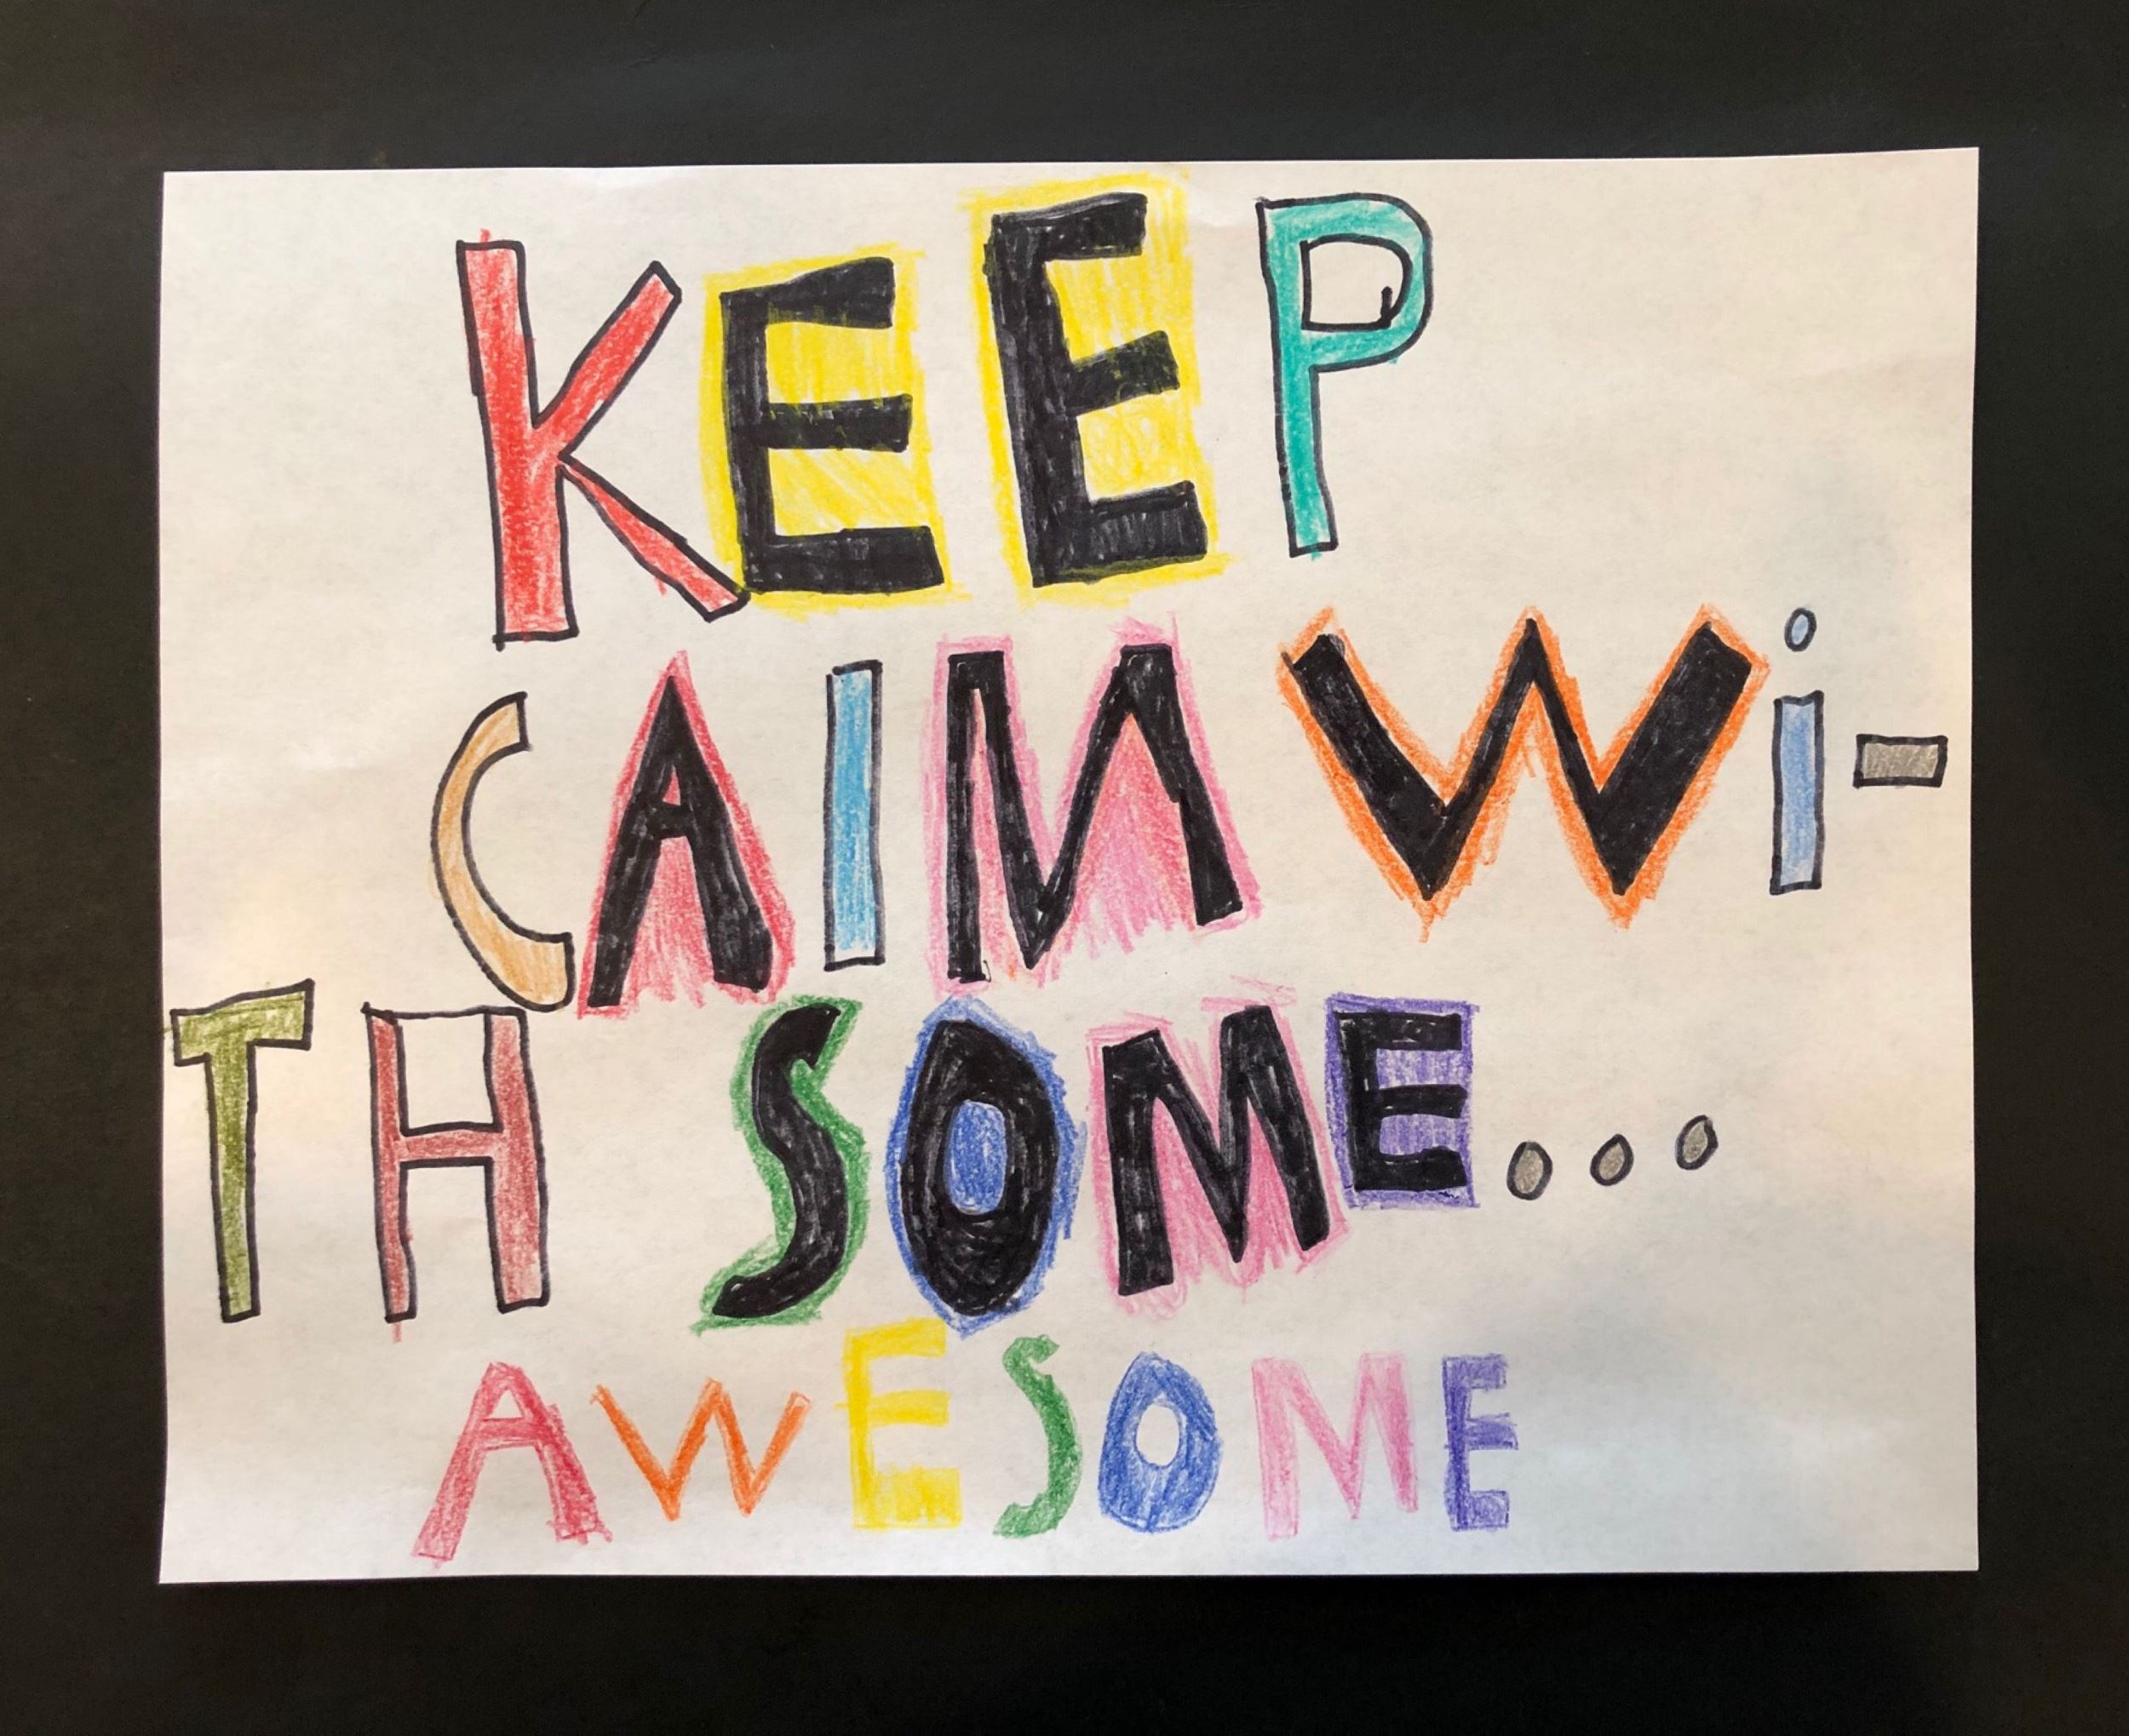 KEEP
CAlM Wi-
TH SOME...
AWESOME